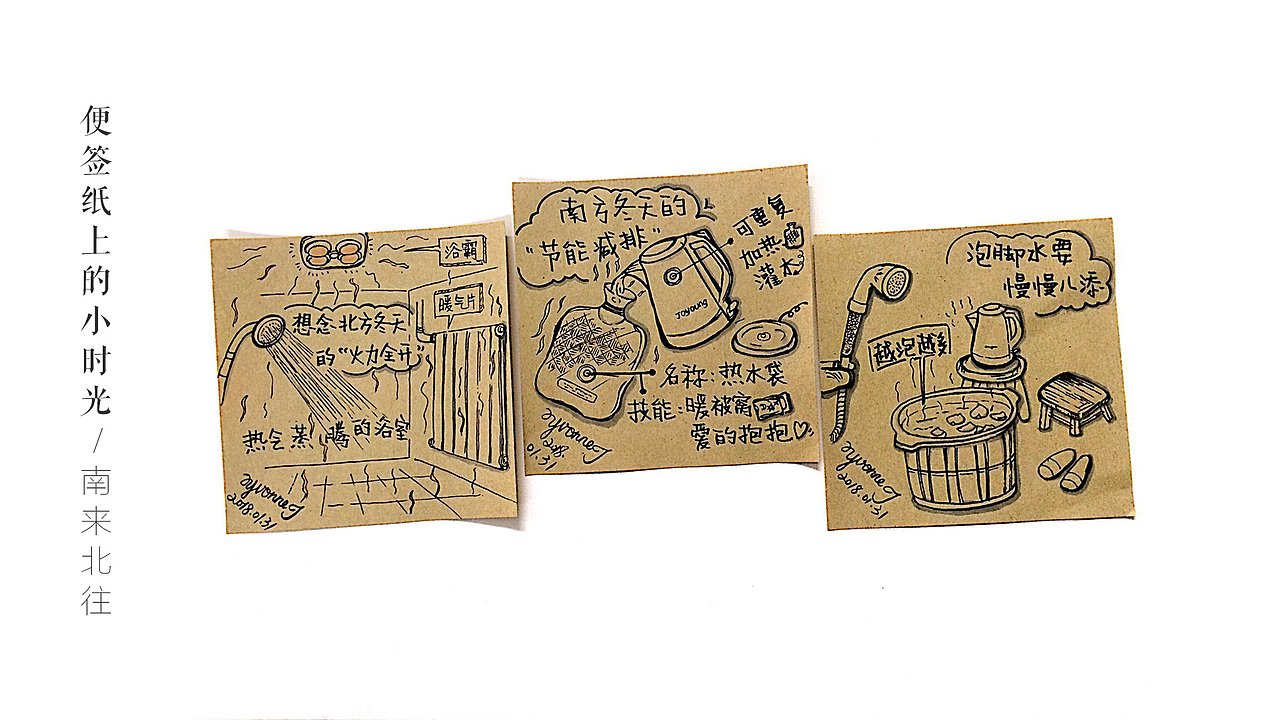 便签纸上的小时光/南来北往
浴霸
暖气片
想念北方冬天
的“火力全开”
热气蒸腾的浴室
Yvonne
2018.01.31
南方冬天的
“节能减排”
可重复
加热
灌水
Joyoung
名称:热水袋
技能:暖被窝
爱的抱抱
Yvonne
2018.
01.31
泡脚水要
慢慢儿添
越泡越美
Yvonne
2018.01.31